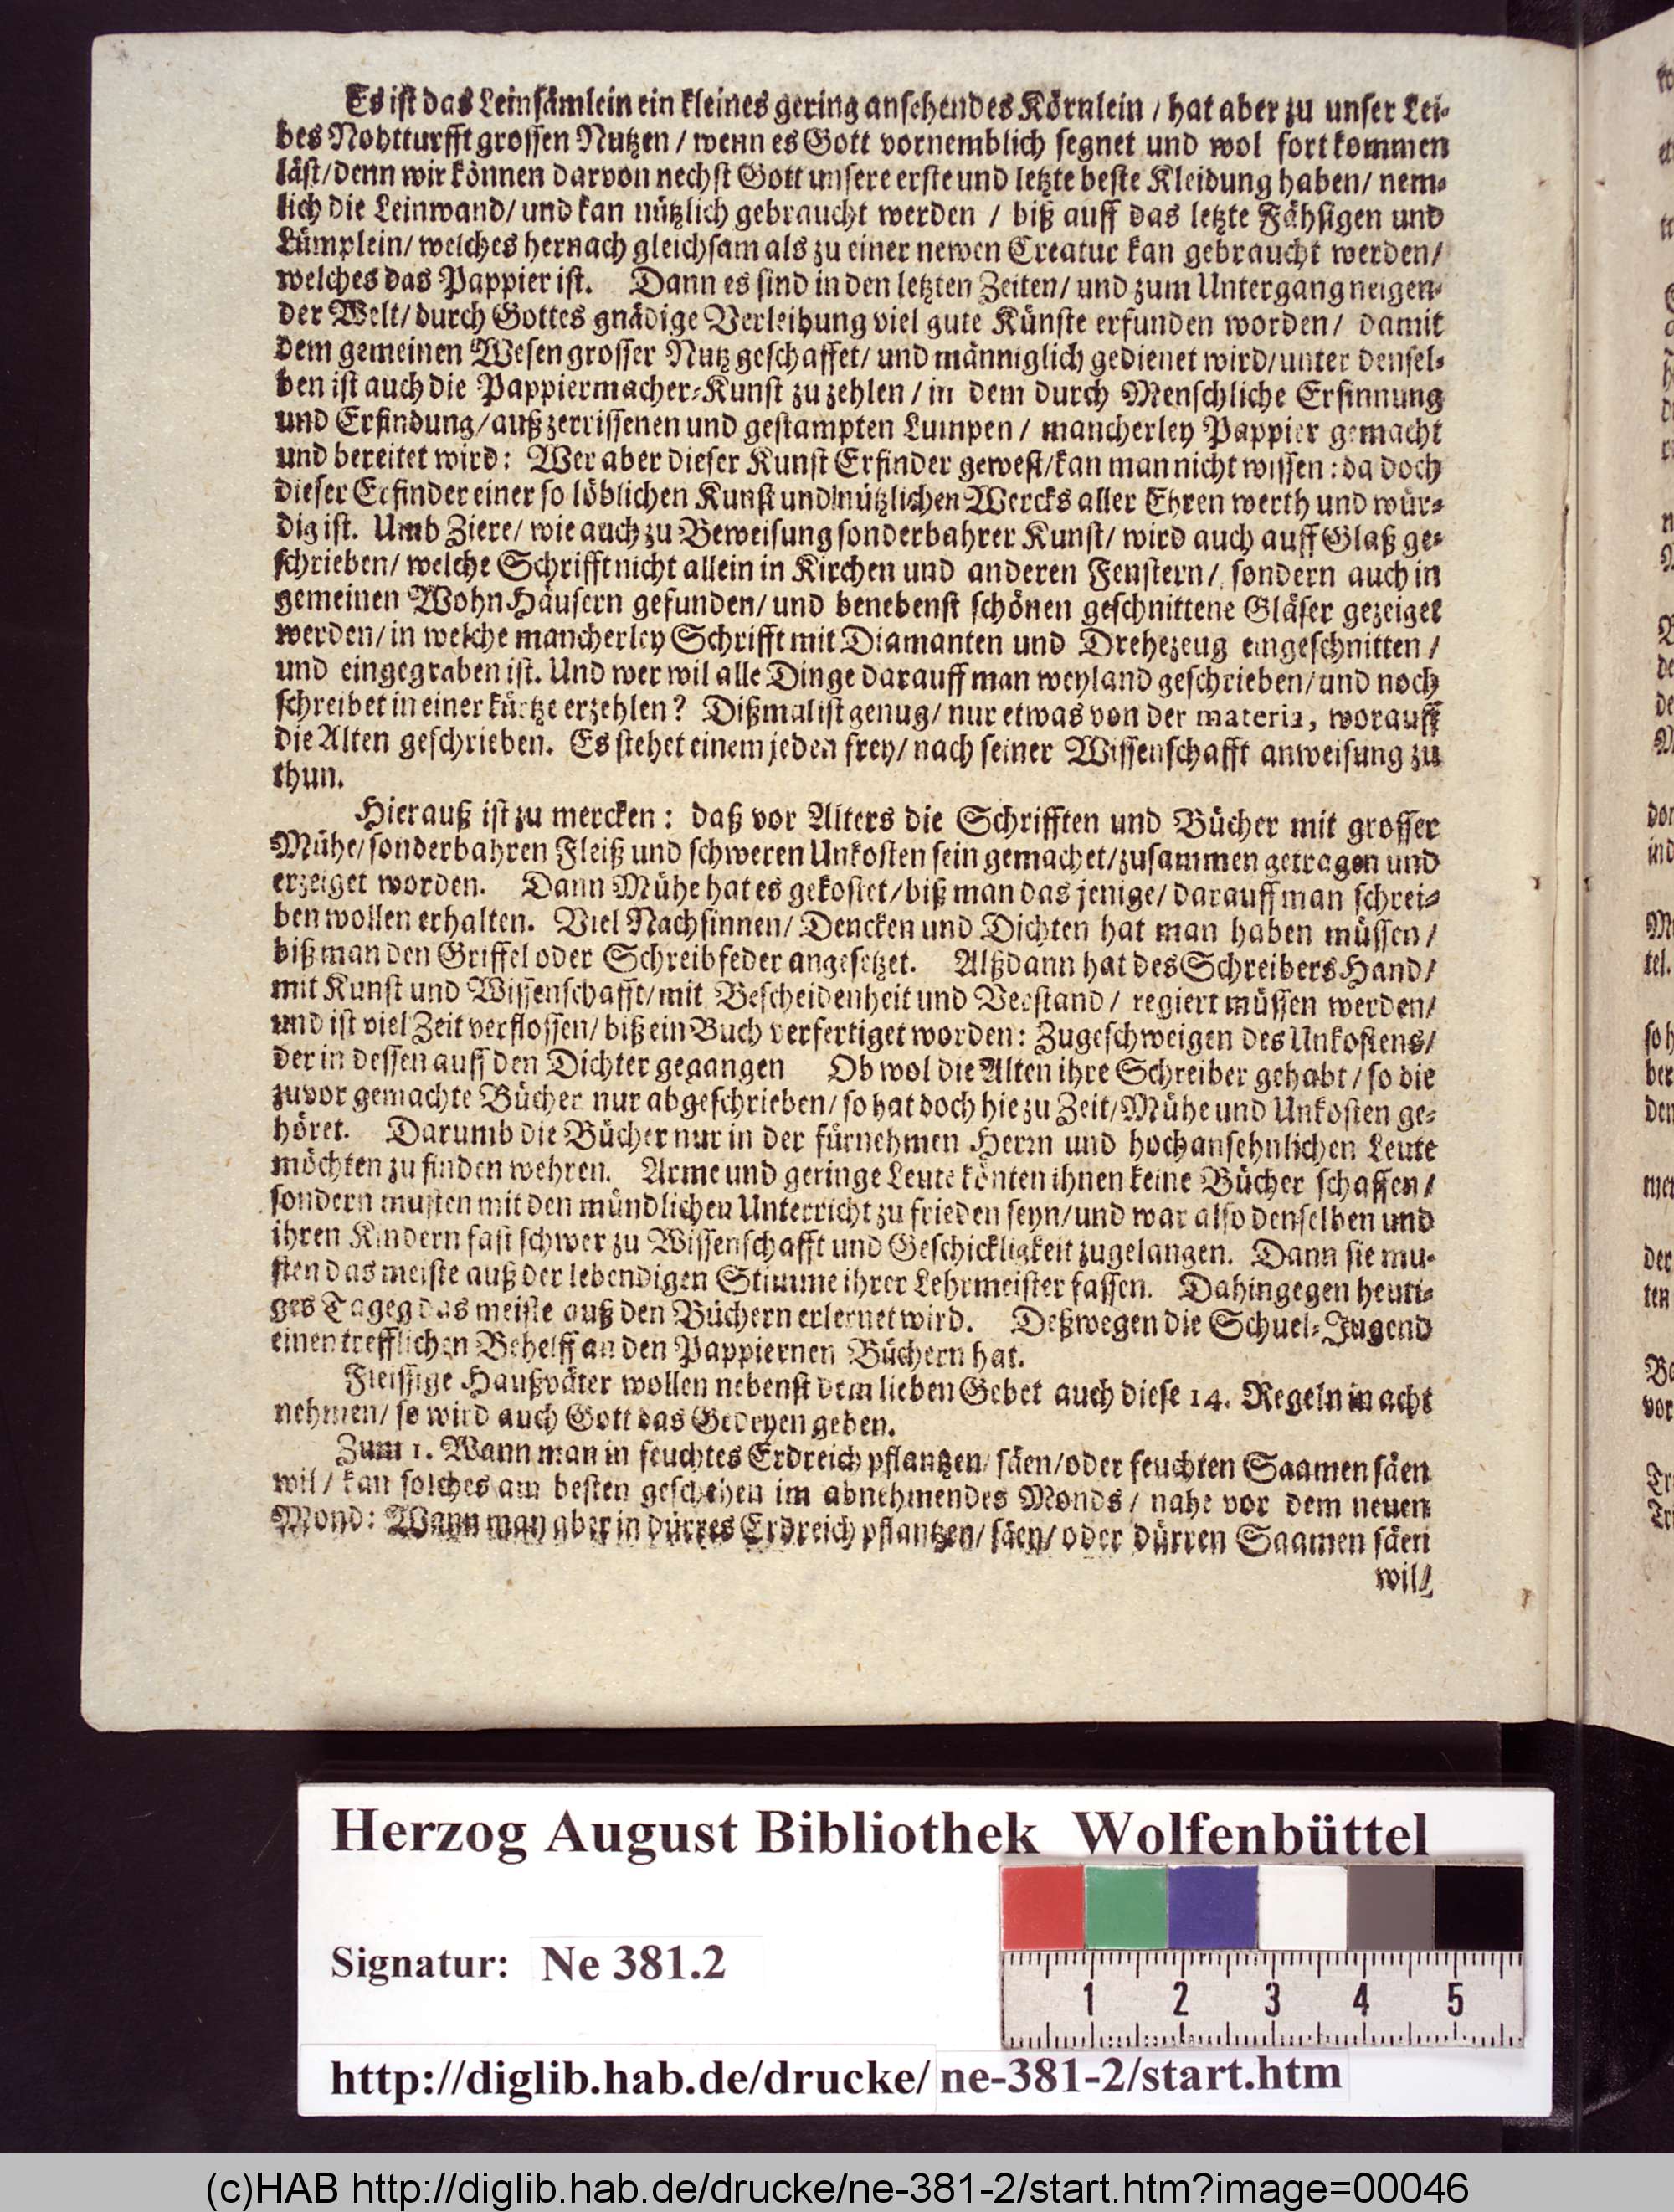 Es ist das Leinsämlein ein kleines gering ansehendes Körnlein / hat aber zu unser Lei-
bes Nohtturfft grossen Nutzen / wenn es Gott vornemblich segnet und wol fortkommen
läst / denn wir können darvon nechst Gott unsere erste und letzte beste Kleidung haben / nem-
lich die Leinwand / und kan nützlich gebraucht werden / biß auff das letzte Fähsigen und
Lümplein / welches hernach gleichsam als zu einer newen Creatur kan gebraucht werden /
welches das Pappier ist. Dann es sind in den letzten Zeiten / und zum Untergang neigen-
der Welt / durch Gottes gnädige Verleihung viel gute Künste erfunden worden / damit
dem gemeinen Wesen grosser Nutz geschaffet / und männiglich gedienet wird / unter densel-
ben ist auch die Pappiermacher-Kunst zu zehlen / in dem durch Menschliche Ersinnung
und Erfindung / auß zerrissenen und gestampten Lumpen / mancherley Pappier gemacht
und bereitet wird: Wer aber dieser Kunst Erfinder gewest / kan man nicht wissen: da doch
dieser Erfinder einer so löblichen Kunst und nützlichen Wercks aller Ehren werth und wür-
dig ist. Umb Ziere / wie auch zu Beweisung sonderbahrer Kunst / wird auch auff Glaß ge-
schrieben / welche Schrifft nicht allein in Kirchen und anderen Fenstern / sondern auch in
gemeinen WohnHäusern gefunden / und benebenst schönen geschnittene Gläser gezeiget
werden / in welche mancherley Schrifft mit Diamanten und Drehezeug eingeschnitten /
und eingegraben ist. Und wer wil alle Dinge darauff man weyland geschrieben / und noch
schreibet in einer kürtze erzehlen? Dißmal ist genug / nur etwas von der materia, worauff
die Alten geschrieben. Es stehet einem jeden frey / nach seiner Wissenschafft anweisung zu
thun.
Hierauß ist zu mercken: daß vor Alters die Schrifften und Bücher mit grosser
Mühe / sonderbahren Fleiß und schweren Unkosten sein gemachet / zusammen getragen und
erzeiget worden. Dann Mühe hat es gekostet / biß man das jenige / darauff man schrei-
ben wollen erhalten. Viel Nachsinnen / Dencken und Dichten hat man haben müssen /
biß man den Griffel oder Schreibfeder angesetzet. Alßdann hat des Schreibers Hand /
mit Kunst und Wissenschafft / mit Bescheidenheit und Verstand / regiert müssen werden /
und ist viel Zeit verflossen / biß ein Buch verfertiget worden: Zugeschweigen des Unkostens /
der in dessen auff den Dichter gegangen Ob wol die Alten ihre Schreiber gehabt / so die
zuvor gemachte Bücher nur abgeschrieben / so hat doch hiezu Zeit / Mühe und Unkosten ge-
höret. Darumb die Bücher nur in der fürnehmen Herrn und hochansehnlichen Leute
möchten zu finden wehren. Arme und geringe Leute könten ihnen keine Bücher schaffen /
sondern musten mit den mündlichen Unterricht zu frieden seyn / und war also denselben und
ihren Kindern fast schwer zu Wissenschafft und Geschickligkeit zugelangen. Dann sie mu-
sten das meiste auß der lebendigen Stimme ihrer Lehrmeister fassen. Dahingegen heuti-
ges Tageg das meiste auß den Büchern erlernet wird. Deßwegen die Schuel-Jugend
einen trefflichen Behelff an den Pappiernen Büchern hat.
Fleissige Haußväter wollen nebenst dem lieben Gebet auch diese 14. Regeln in acht
nehmen / so wird auch Gott das Gedeyen geben.
Zum 1. Wann man in feuchtes Erdreich pflantzen / säen / oder feuchten Saamen säen
wil / kan solches am besten geschehen im abnehmendes Monds / nahe vor dem neuen
Mond: Wann man aber in dürres Erdreich pflantzen / säen / oder dürren Saamen säen
wil /
Herzog August Bibliothek Wolfenbüttel
Signatur: Ne 381.2
1 2 3 4 5
http://diglib.hab.de/drucke/ne-381-2/start.htm
(c)HAB http://diglib.hab.de/drucke/ne-381-2/start.htm?image=00046